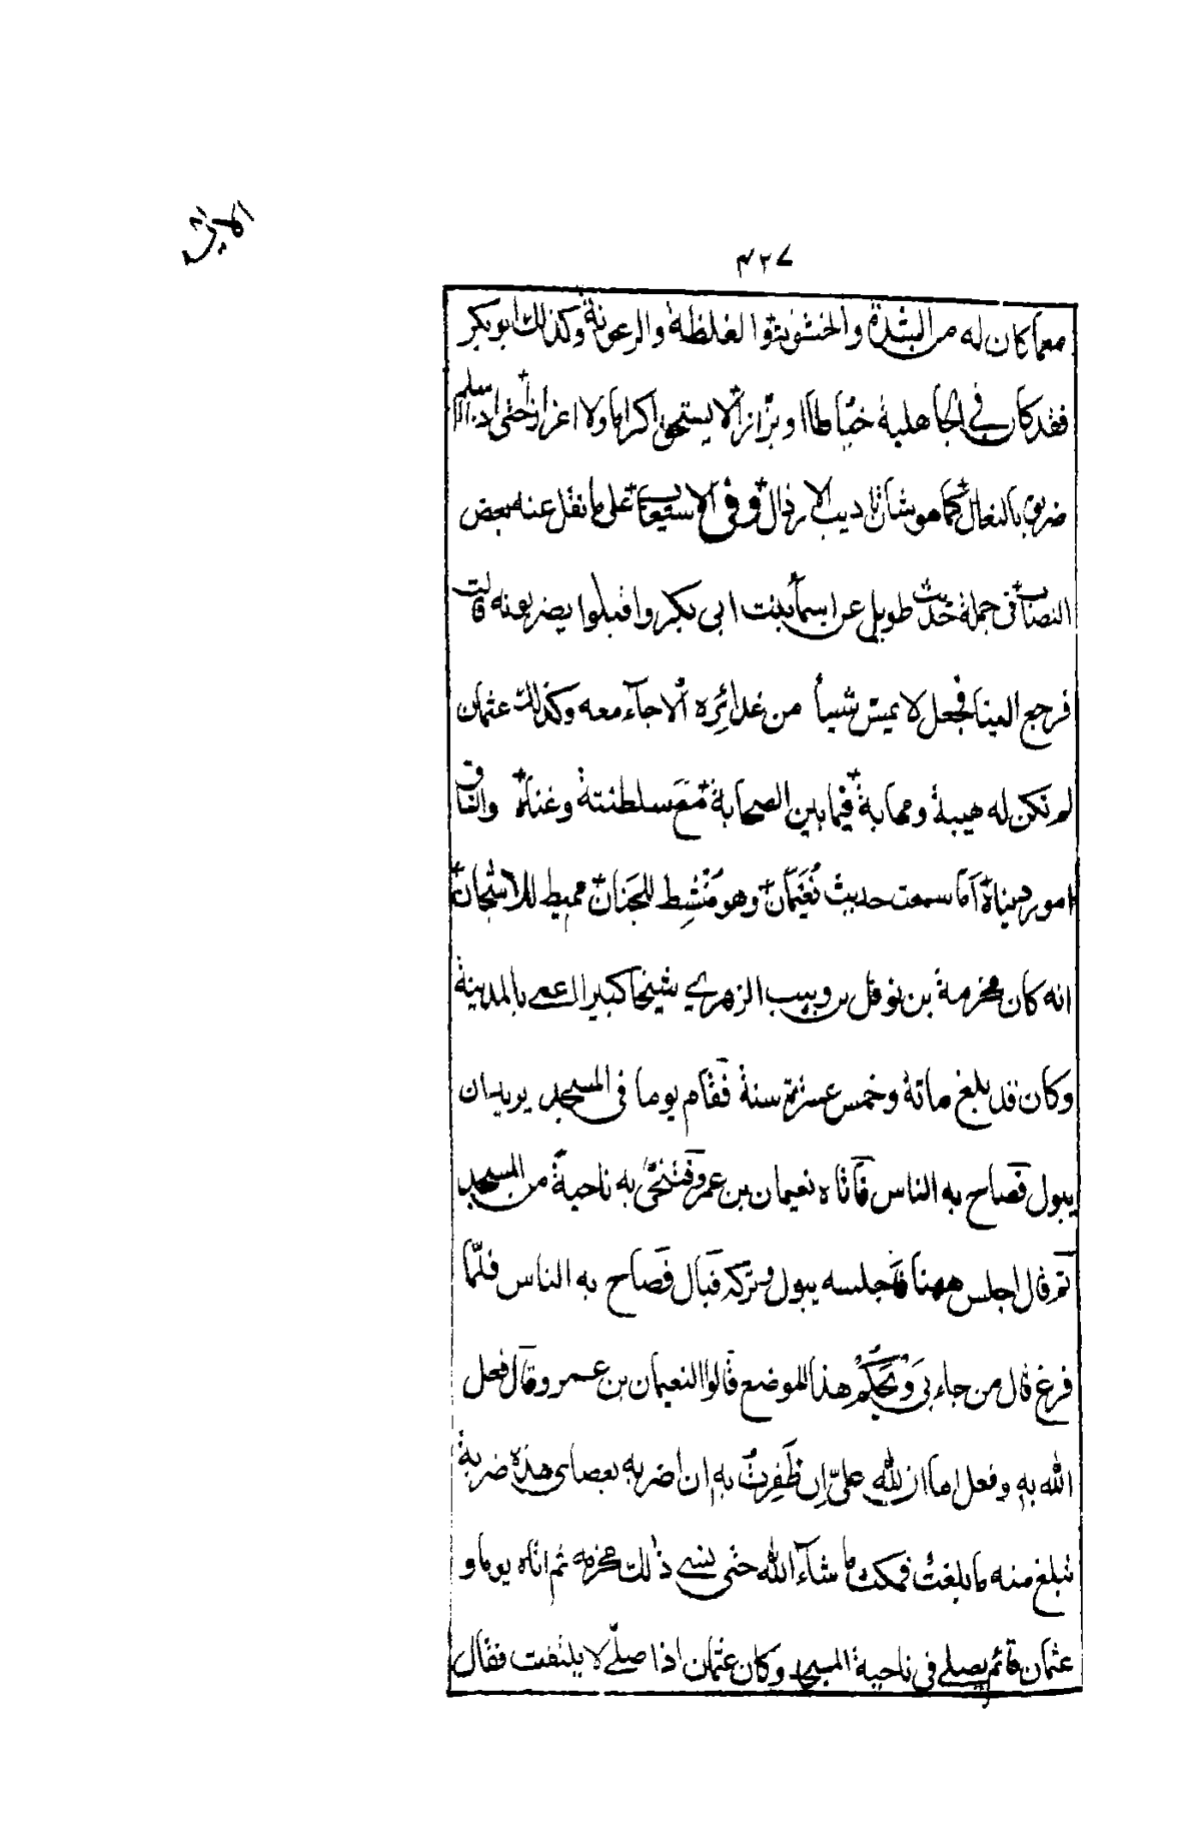 ٤٢٧
مع ما كان له من الشدة والخشونة والغلظة والرعونة وكذلك ابو بكر
فقد كان في الجاهلية خياطا او بزازا لا يستحق اكراما ولا اعزازا حتى اذا اسلم
ضربوه بالنعال كما هو شان تاديب الارذال وفى الاستيعاب على ما نقل عنه بعض
النصاب فى جملة حديث طويل عن اسماء بنت ابى بكر واقبلوا يضربونه قالت
فرجع الينا فجعل لا يمس شيئا من غدائره الا جاء معه وكذلك عثمان
لم تكن له هيبة ومهابة فيما بين الصحابة مع سلطنته وغناه
امور دنياه اما سمعت حديث نعيمان وهو منشط للجذان مميط للاشجان
انه كان مخرمة بن نوفل بن وهيب الزهري شيخا كبيرا اعمى بالمدينة
وكان قد بلغ مائة وخمس عشرة سنة فقام يوما فى المسجد يريد ان
يبول فصاح به الناس فأتاه نعيمان بن عمرو فتنحى به ناحية من المسجد
ثم قال اجلس ههنا فاجلسه يبول وتركه فبال فصاح به الناس فلما
فرغ قال من جاء بى ويحكم هذا الموضع قالوا النعيمان بن عمرو قال فعل
الله به وفعل اما ان لله علي ان ظفرت به ان اضربه بعصاى هذه ضربة
تبلغ منه ما بلغت فمكث ما شاء الله حتى نسي ذلك مخرمه ثم اتاه يوما و
عثمان قائم يصلي فى ناحية المسجد وكان عثمان اذا صلى لا يلتفت فقال